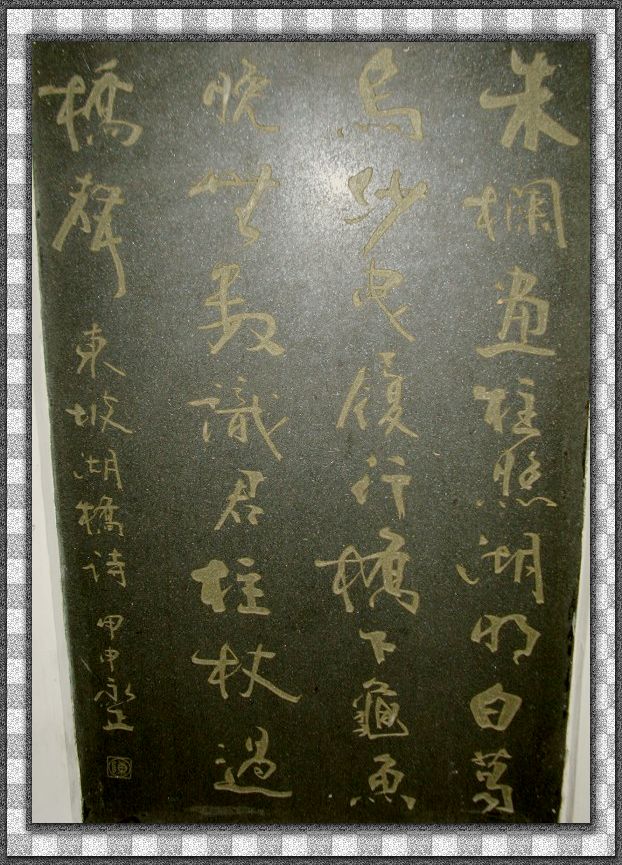 朱欄畫柱照湖明白葛
烏紗曳履行橋下龜魚
晚無數識君柱杖過
橋聲 東坡湖橋詩 甲申